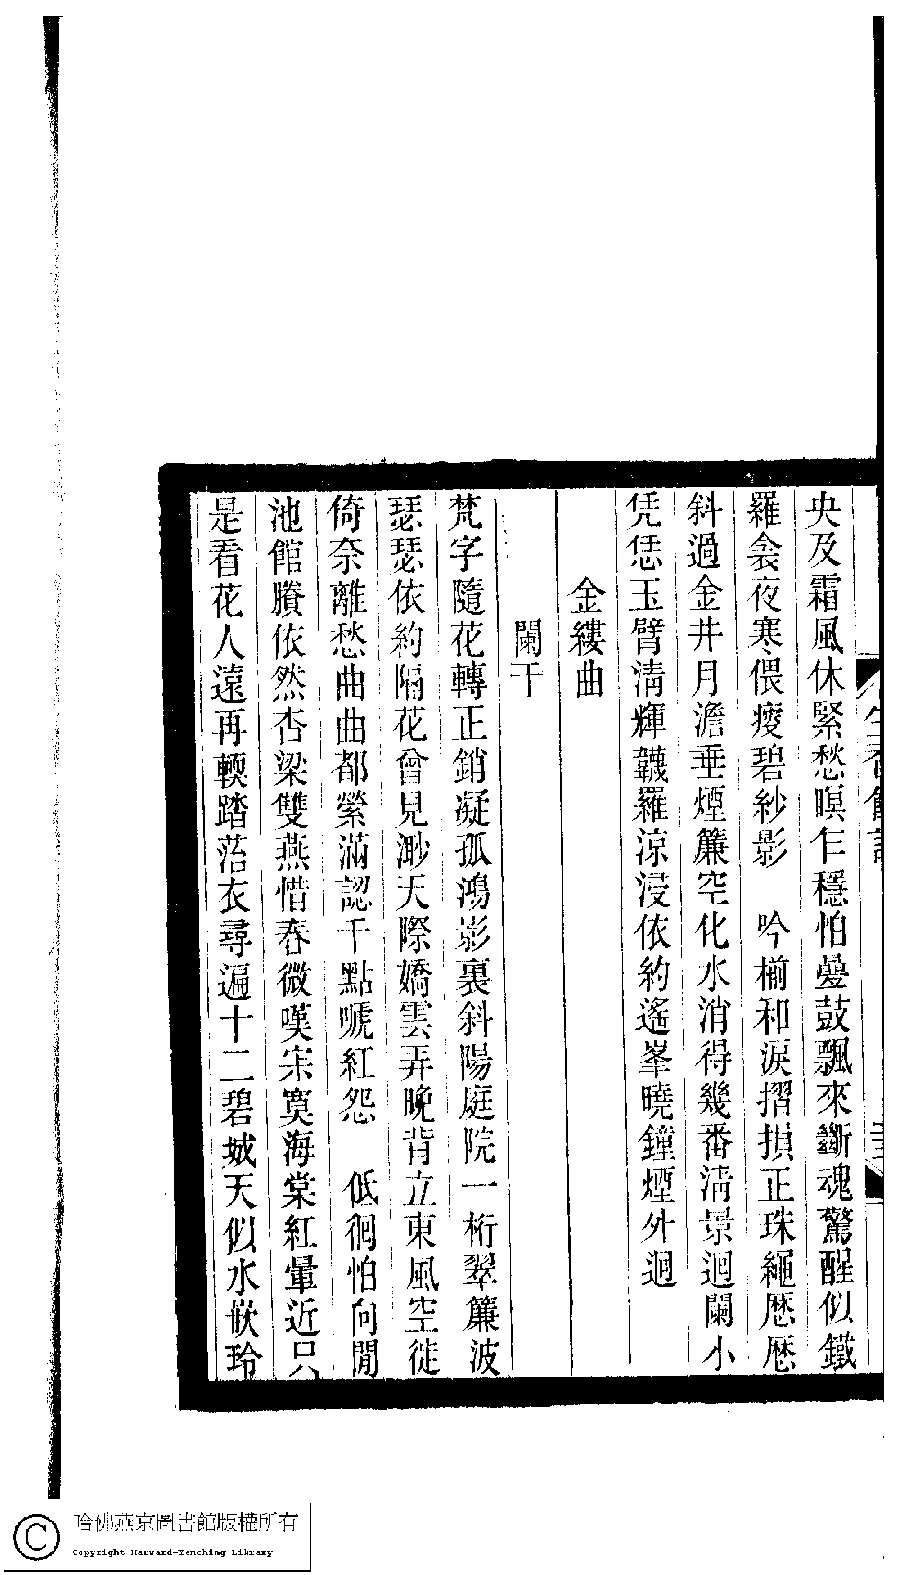 央及霜風休緊愁暝乍穩怕疊鼓飄來斷魂驚醒似鐵
羅衾夜寒偎瘦碧紗影　吟櫥和淚摺損正珠繩歷歷
斜過金井月澹垂煙簾空化水消得幾番淸景迴闌小
凭恁玉臂淸輝韤羅涼浸依約遙峯曉鐘煙外迥
金縷曲
闌干
梵字隨花轉正銷凝孤鴻影裏斜陽庭院一桁翠簾波
瑟瑟依約隔花曾見渺天際嬌雲弄晚背立東風空徙
倚奈離愁曲曲都縈滿認千點唬紅怨　低徊怕向閒
池館賸依然杏梁雙燕惜春微嘆寂寞海棠紅暈近只
是看花人遠再輭踏落衣尋遍十二碧城天似水嵌玲
哈佛燕京圖書館版權所有
Copyright Harvard-Yenching Library